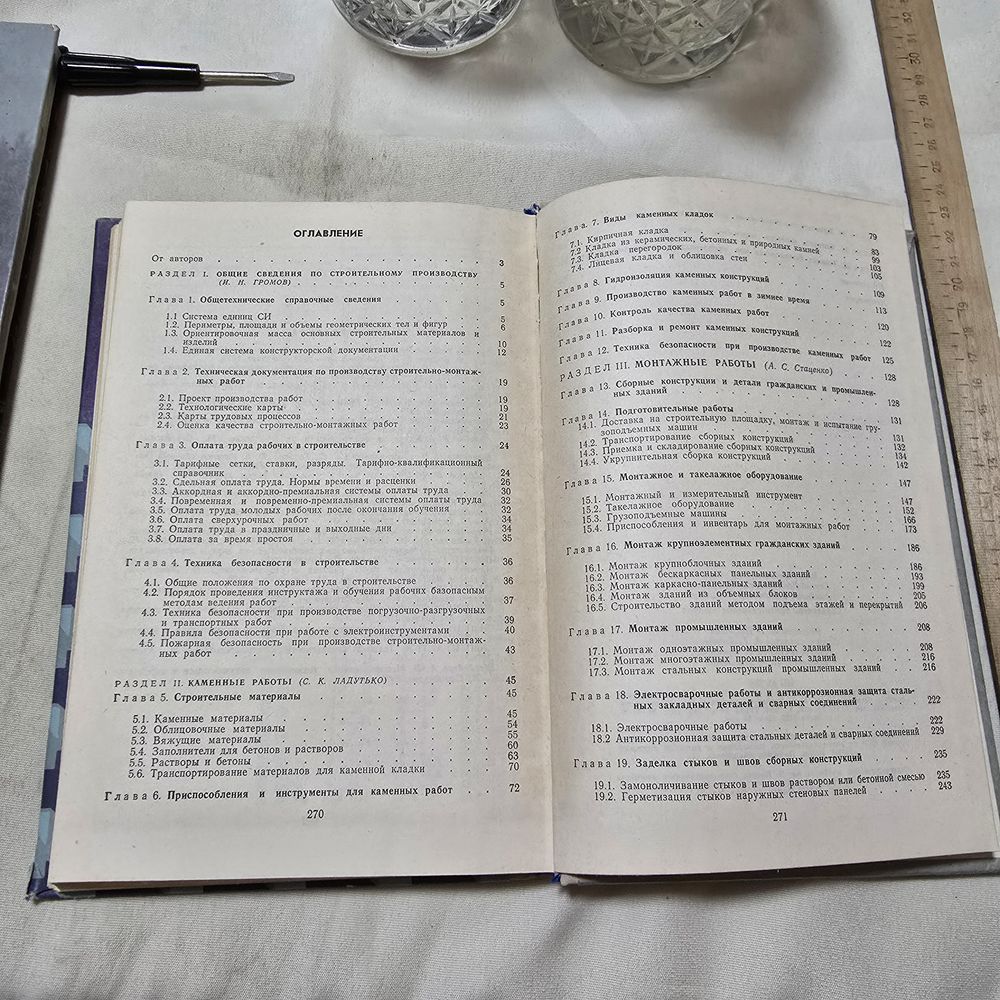 ОГЛАВЛЕНИЕ
От авторов . . . 3
РАЗДЕЛ I. ОБЩИЕ СВЕДЕНИЯ ПО СТРОИТЕЛЬНОМУ ПРОИЗВОДСТВУ
(И. Н. ГРОМОВ) . . . 5
Глава 1. Общетехнические справочные сведения . . . 5
1.1 Система единиц СИ . . . 5
1.2. Периметры, площади и объемы геометрических тел и фигур . . . 6
1.3. Ориентировочная масса основных строительных материалов и
изделий . . . 10
1.4. Единая система конструкторской документации . . . 12
Глава 2. Техническая документация по производству строительно-монтаж-
ных работ . . . 19
2.1. Проект производства работ . . . 19
2.2. Технологические карты . . . 19
2.3. Карты трудовых процессов . . . 21
2.4. Оценка качества строительно-монтажных работ . . . 23
Глава 3. Оплата труда рабочих в строительстве . . . 24
3.1. Тарифные сетки, ставки, разряды. Тарифно-квалификационный
справочник . . . 24
3.2. Сдельная оплата труда. Нормы времени и расценки . . . 26
3.3. Аккордная и аккордно-премиальная системы оплаты труда . . . 30
3.4. Повременная и повременно-премиальная системы оплаты труда 32
3.5. Оплата труда молодых рабочих после окончания обучения . . . 32
3.6. Оплата сверхурочных работ . . . 34
3.7. Оплата труда в праздничные и выходные дни . . . 34
3.8. Оплата за время простоя . . . 35
Глава 4. Техника безопасности в строительстве . . . 36
4.1. Общие положения по охране труда в строительстве . . . 36
4.2. Порядок проведения инструктажа и обучения рабочих безопасным
методам ведения работ . . . 37
4.3. Техника безопасности при производстве погрузочно-разгрузочных
и транспортных работ . . . 39
4.4. Правила безопасности при работе с электроинструментами . . . 40
4.5. Пожарная безопасность при производстве строительно-монтаж-
ных работ . . . 43
РАЗДЕЛ II. КАМЕННЫЕ РАБОТЫ (С. К. ЛАДУТЬКО) . . . 45
Глава 5. Строительные материалы . . . 45
5.1. Каменные материалы . . . 45
5.2. Облицовочные материалы . . . 54
5.3. Вяжущие материалы . . . 55
5.4. Заполнители для бетонов и растворов . . . 60
5.5. Растворы и бетоны . . . 63
5.6. Транспортирование материалов для каменной кладки . . . 70
Глава 6. Приспособления и инструменты для каменных работ . . . 72
270
Глава 7. Виды каменных кладок . . . 79
7.1. Кирпичная кладка
7.2 Кладка из керамических, бетонных и природных камней 83
7.3. Кладка перегородок . . . 99
7.4. Лицевая кладка и облицовка стен . . . 103
Глава 8. Гидроизоляция каменных конструкций . . . 105
Глава 9. Производство каменных работ в зимнее время . . . 109
Глава 10. Контроль качества каменных работ . . . 113
Глава 11. Разборка и ремонт каменных конструкций . . . 120
122
Глава 12. Техника безопасности при производстве каменных работ 125
РАЗДЕЛ III. МОНТАЖНЫЕ РАБОТЫ (А. С. Стаценко) . . . 128
Глава 13. Сборные конструкции и детали гражданских и промышлен-
ных зданий . . . 128
Глава 14. Подготовительные работы . . . 131
14.1. Доставка на строительную площадку, монтаж и испытание гру-
зоподъемных машин . . . 131
14.2. Транспортирование сборных конструкций . . . 132
14.3. Приемка и складирование сборных конструкций . . . 134
14.4. Укрупнительная сборка конструкций . . . 142
Глава 15. Монтажное и такелажное оборудование . . . 147
15.1. Монтажный и измерительный инструмент . . . 147
15.2. Такелажное оборудование . . . 152
15.3. Грузоподъемные машины . . . 166
15.4. Приспособления и инвентарь для монтажных работ . . . 173
Глава 16. Монтаж крупноэлементных гражданских зданий . . . 186
16.1. Монтаж крупноблочных зданий . . . 186
16.2. Монтаж бескаркасных панельных зданий . . . 193
16.3. Монтаж каркасно-панельных зданий . . . 199
16.4. Монтаж зданий из объемных блоков . . . 205
16.5. Строительство зданий методом подъема этажей и перекрытий 206
Глава 17. Монтаж промышленных зданий . . . 208
17.1. Монтаж одноэтажных промышленных зданий . . . 208
17.2. Монтаж многоэтажных промышленных зданий . . . 216
17.3. Монтаж стальных конструкций промышленных зданий . . . 216
Глава 18. Электросварочные работы и антикоррозионная защита сталь-
ных закладных деталей и сварных соединений . . . 222
18.1. Электросварочные работы . . . 222
18.2 Антикоррозионная защита стальных деталей и сварных соединений 229
Глава 19. Заделка стыков и швов сборных конструкций . . . 235
19.1. Замоноличивание стыков и швов раствором или бетонной смесью 235
19.2. Герметизация стыков наружных стеновых панелей . . . 243
271